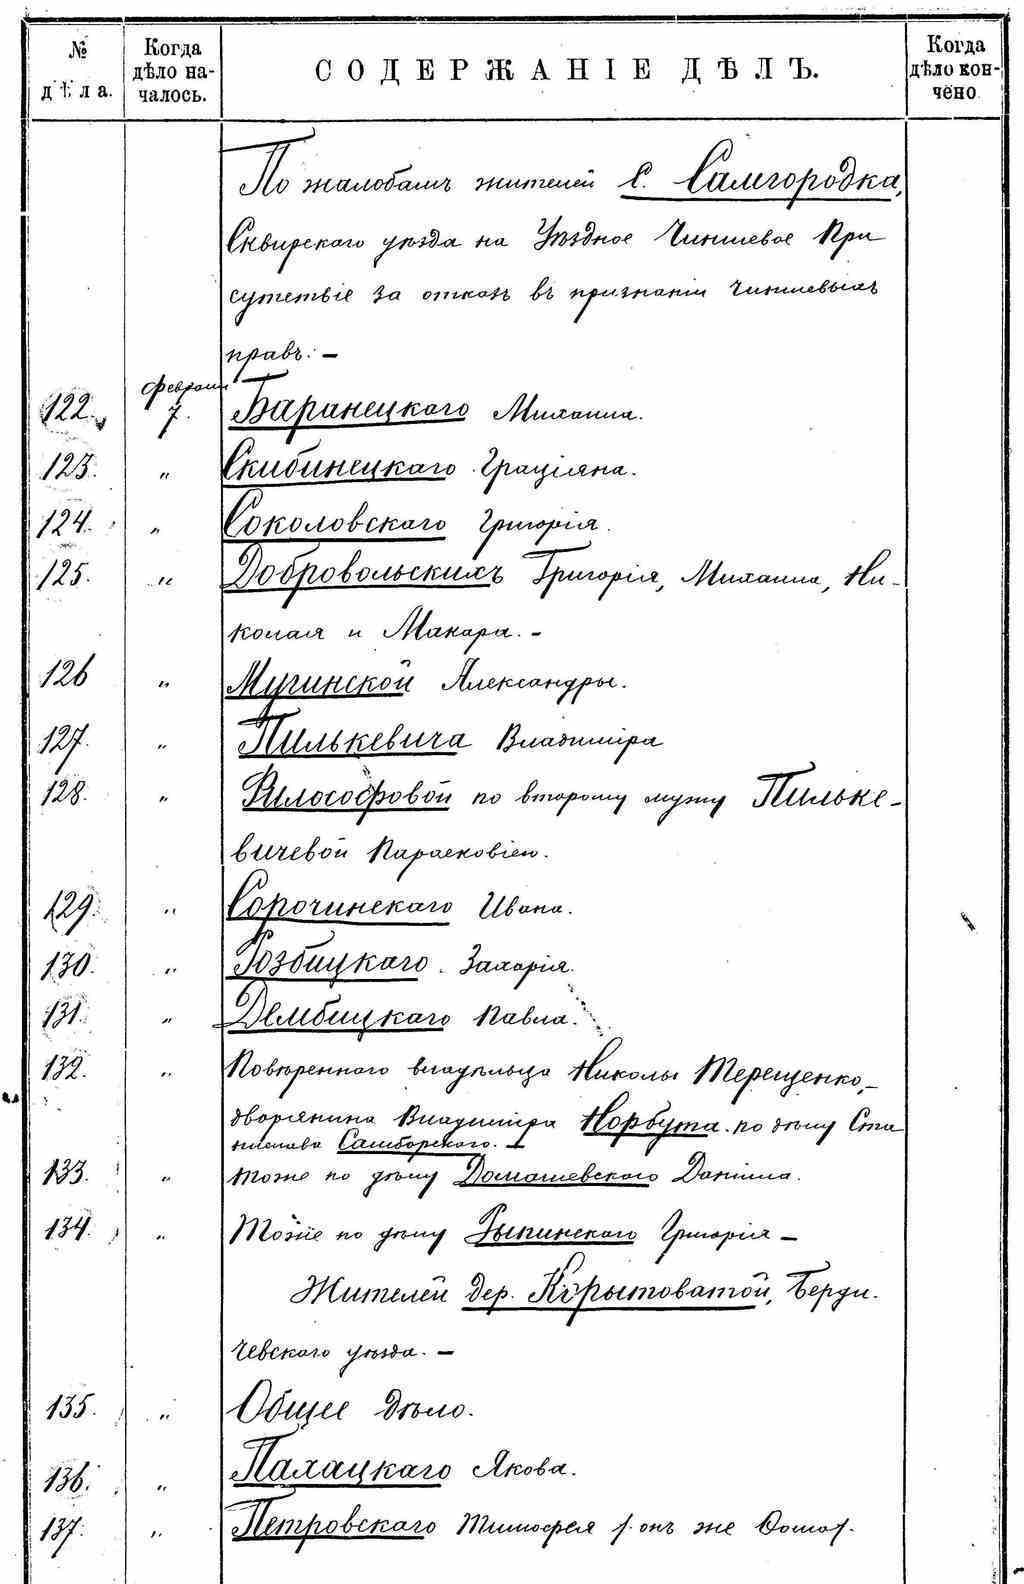 № дѣла.
Когда дѣло началось.
СОДЕРЖАНІЕ ДѢЛЪ.
Когда дѣло кончено
По жалобамъ жителей с. Самгородка,
Сквирскаго уѣзда на Уѣздное Чиншевое При
сутствіе за отказъ въ признаніи чиншевыхъ
правъ: —
122. Февраля 7. Баранецкаго Михаила.
123. " Скибинецкаго Граціяна.
124. " Соколовскаго Григорія.
125. " Добровольскихъ Григорія, Михаила, Ни-
колая и Макара. -
126 " Мугинской Александры.
127. " Пилькевича Владиміра
128. " Филосософовой по второму мужу Пильке-
вичевой Парасковіею.
129. " Сорочинскаго Ивана.
130. " Розбицкаго. Захарія.
131. " Дембицкаго Павла.
132. " Повѣреннаго владѣльца Николы Терещенко,
дворянина Владиміра Норбута по дѣлу Ста
нислава Самборскаго. -
133. " тоже по дѣлу Домашевскаго Даніила.
134. " Тоже по дѣлу Рыпинскаго Григорія —
Жителей дер. Корытоватой, Берди-
чевскаго уѣзда. —
135. " Общее дѣло.
136. " Палацкаго Якова.
137. " Петровскаго Тимофея /. онъ же Фома/.